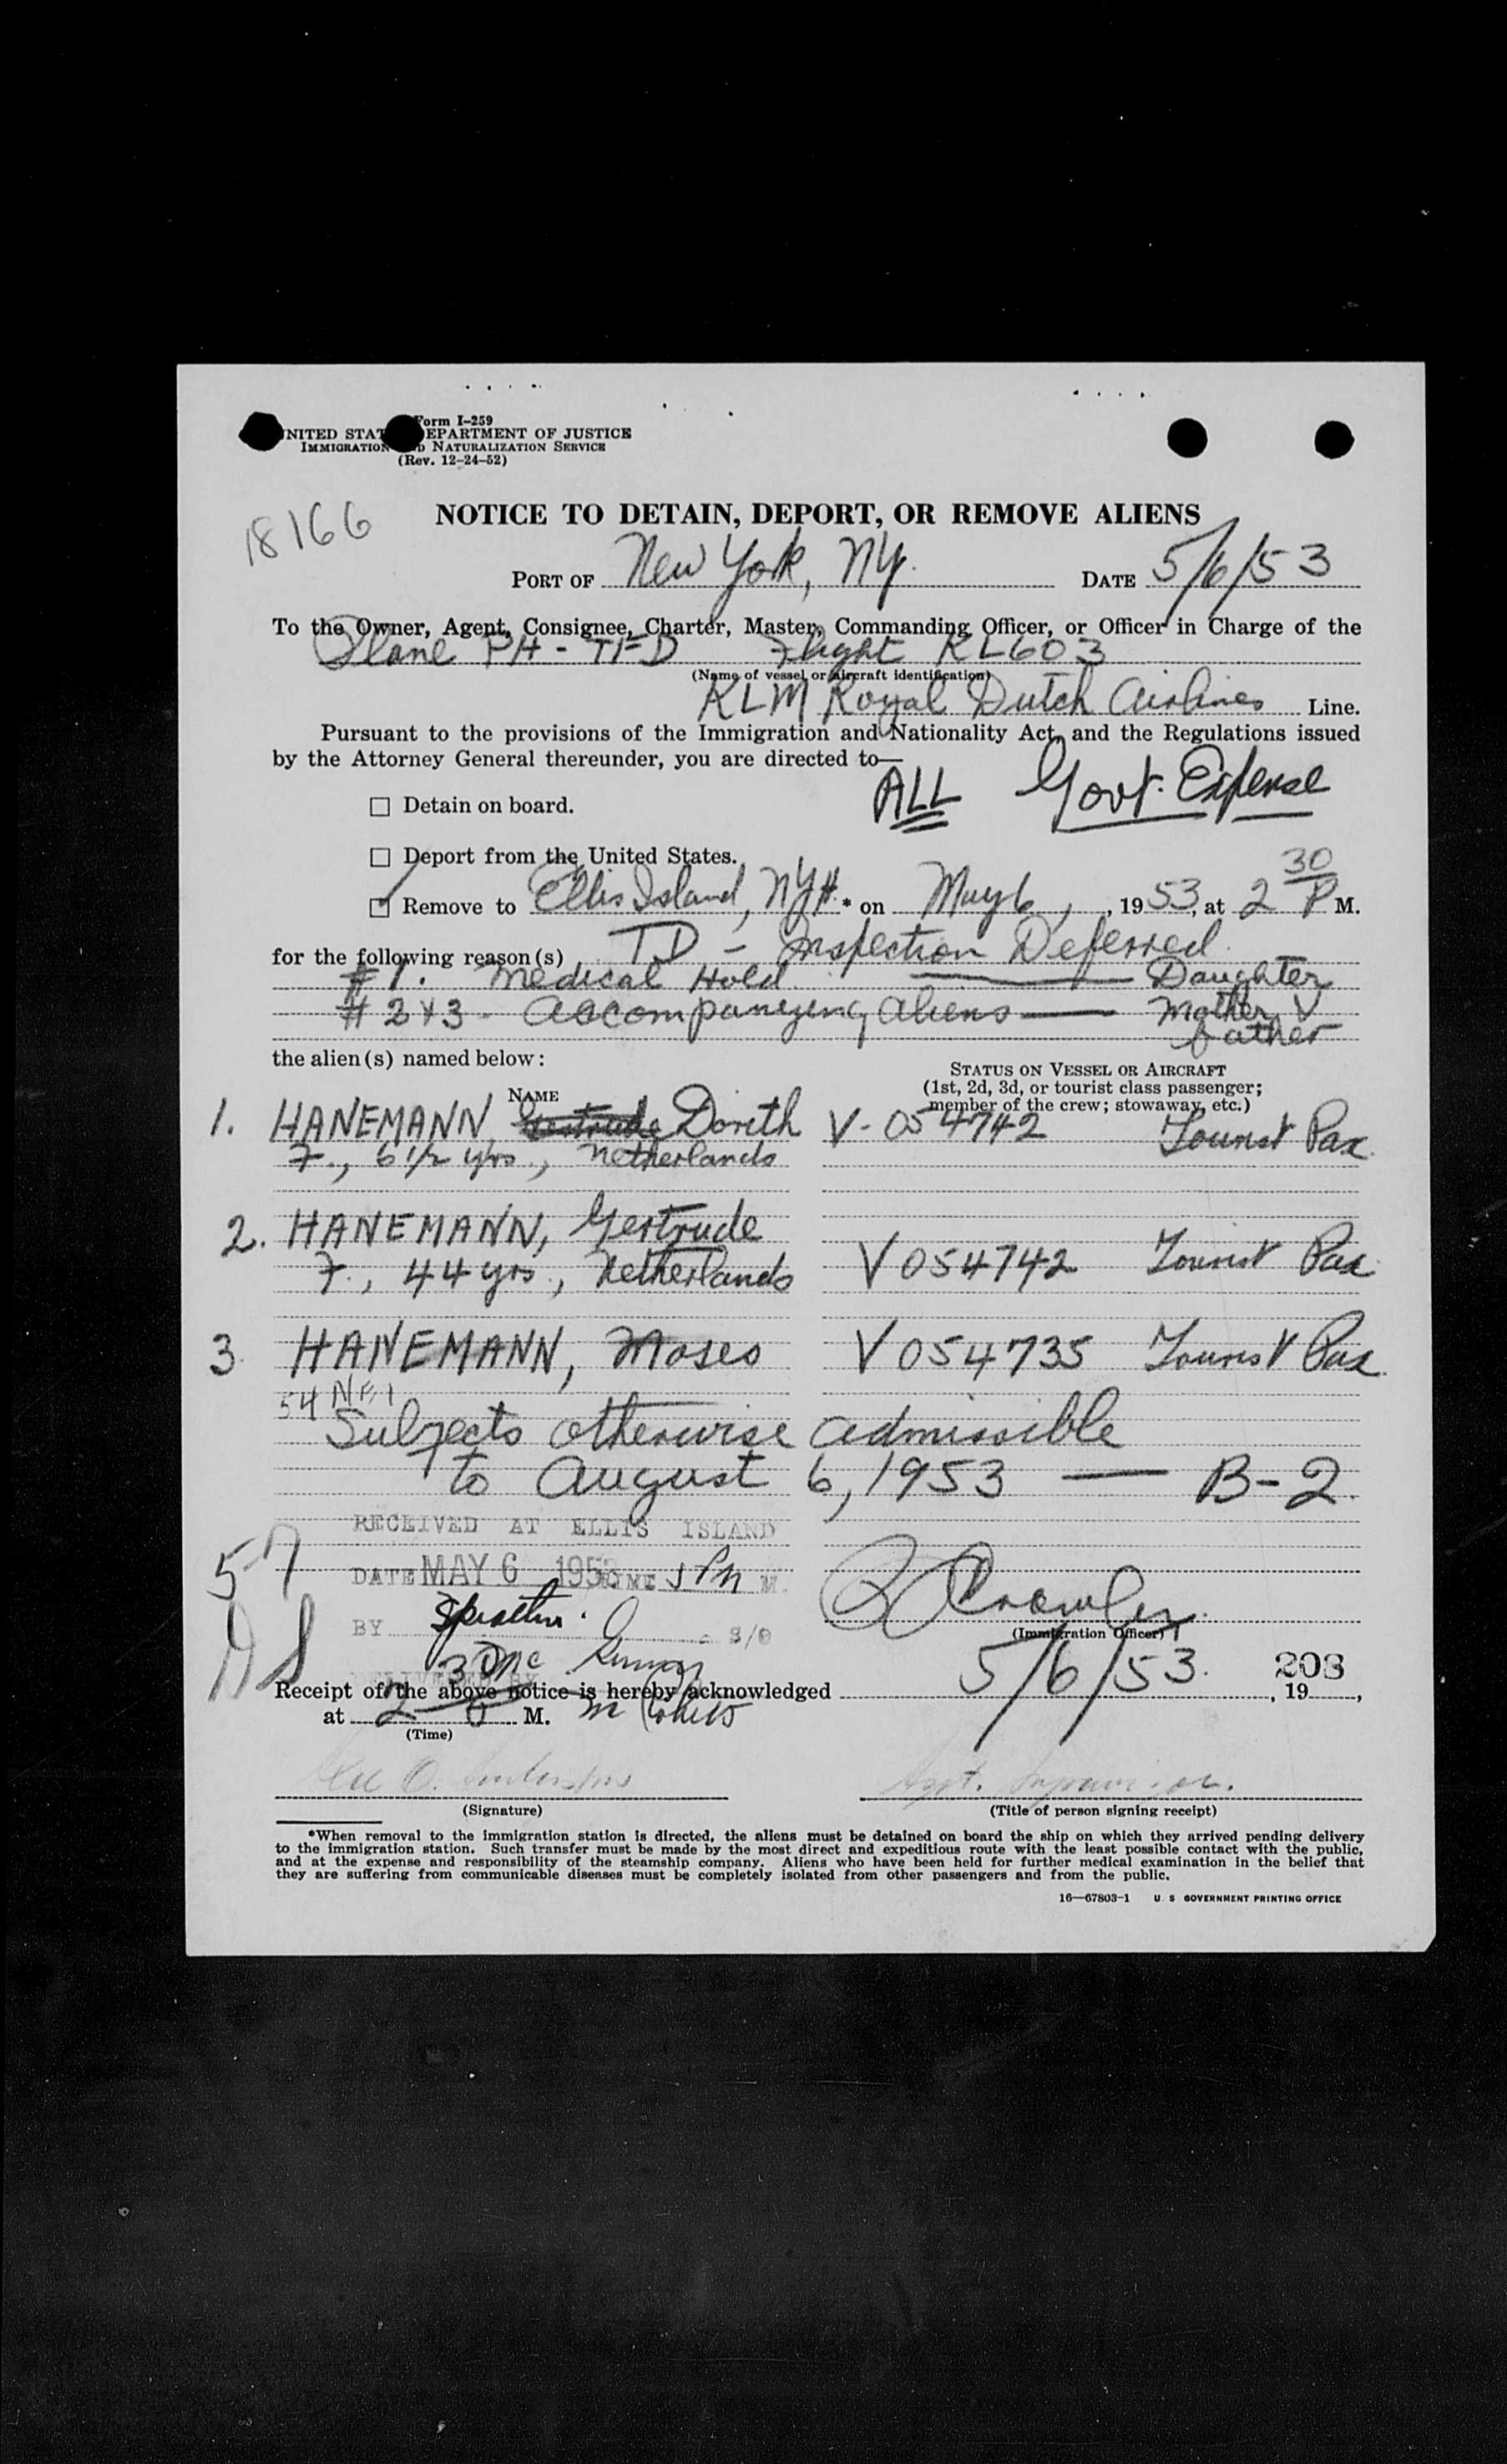 Form I-259
UNITED STATES DEPARTMENT OF JUSTICE
IMMIGRATION AND NATURALIZATION SERVICE
(Rev. 12-24-52)
18166
NOTICE TO DETAIN, DEPORT, OR REMOVE ALIENS
PORT OF New York, NY. DATE 5/6/53
To the Owner, Agent, Consignee, Charter, Master, Commanding Officer, or Officer in Charge of the
Plane PH - TFD Flight KL603
(Name of vessel or aircraft identification)
KLM Royal Dutch Airlines Line.
Pursuant to the provisions of the Immigration and Nationality Act, and the Regulations issued
by the Attorney General thereunder, you are directed to—
ALL Govt. Expense
☐ Detain on board.
☐ Deport from the United States.
☑ Remove to Ellis Island, NYH.* on May 6, 1953, at 2 30 P M.
for the following reason(s) TD - Inspection Deferred
#1. Medical Hold. — Daughter
#2 & 3 - Accompanying aliens — Mother &
father
the alien(s) named below:
STATUS ON VESSEL OR AIRCRAFT
(1st, 2d, 3d, or tourist class passenger;
member of the crew; stowaway, etc.)
NAME
1. HANEMANN, Gertrude Dorith V-054742 Tourist Pax.
F., 6 1/2 yrs., Netherlands
2. HANEMANN, Gertrude
F., 44 yrs., Netherlands V054742 Tourist Pax
3 HANEMANN, Moses V054735 Tourist Pax
54 NEt
Subjects otherwise admissible
to August 6, 1953 — B-2.
RECEIVED AT ELLIS ISLAND
57
DATE MAY 6 1953 TIME 5 PM M.
BY S/O
Crowley
(Immigration Officer)
DELIVERED BY
5/6/53. 203
Receipt of the above notice is hereby acknowledged , 19 ,
at 2 M.
(Time)
Asst. Supervisor.
(Signature)
(Title of person signing receipt)
*When removal to the immigration station is directed, the aliens must be detained on board the ship on which they arrived pending delivery
to the immigration station. Such transfer must be made by the most direct and expeditious route with the least possible contact with the public,
and at the expense and responsibility of the steamship company. Aliens who have been held for further medical examination in the belief that
they are suffering from communicable diseases must be completely isolated from other passengers and from the public.
16—67803-1 U. S. GOVERNMENT PRINTING OFFICE